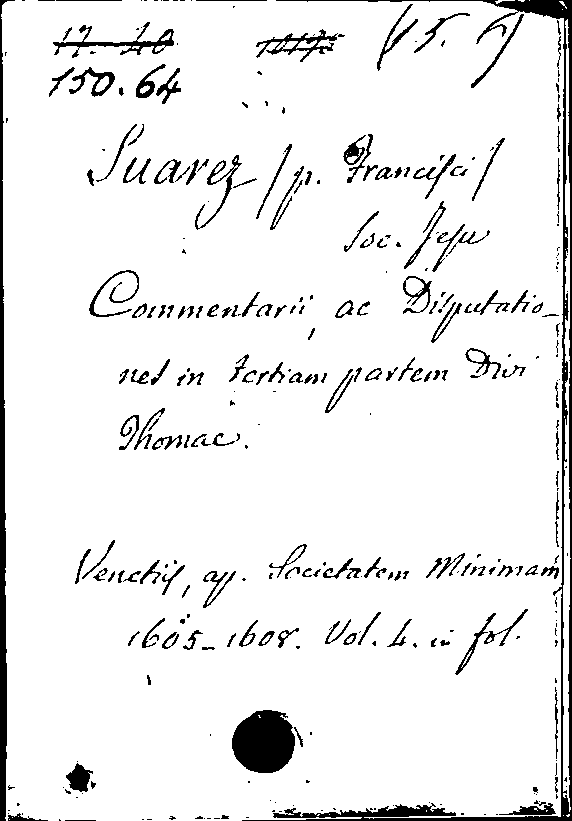 17. 40 (15. 6)
150.64
Suarez / p. Francisci /
Soc. Jesu
Commentarii, ac Disputatio-
nes in tertiam partem Divi
Thomae.
Venetiis, ap. Societatem Minimam
1605-1608. Vol. 4. in fol.